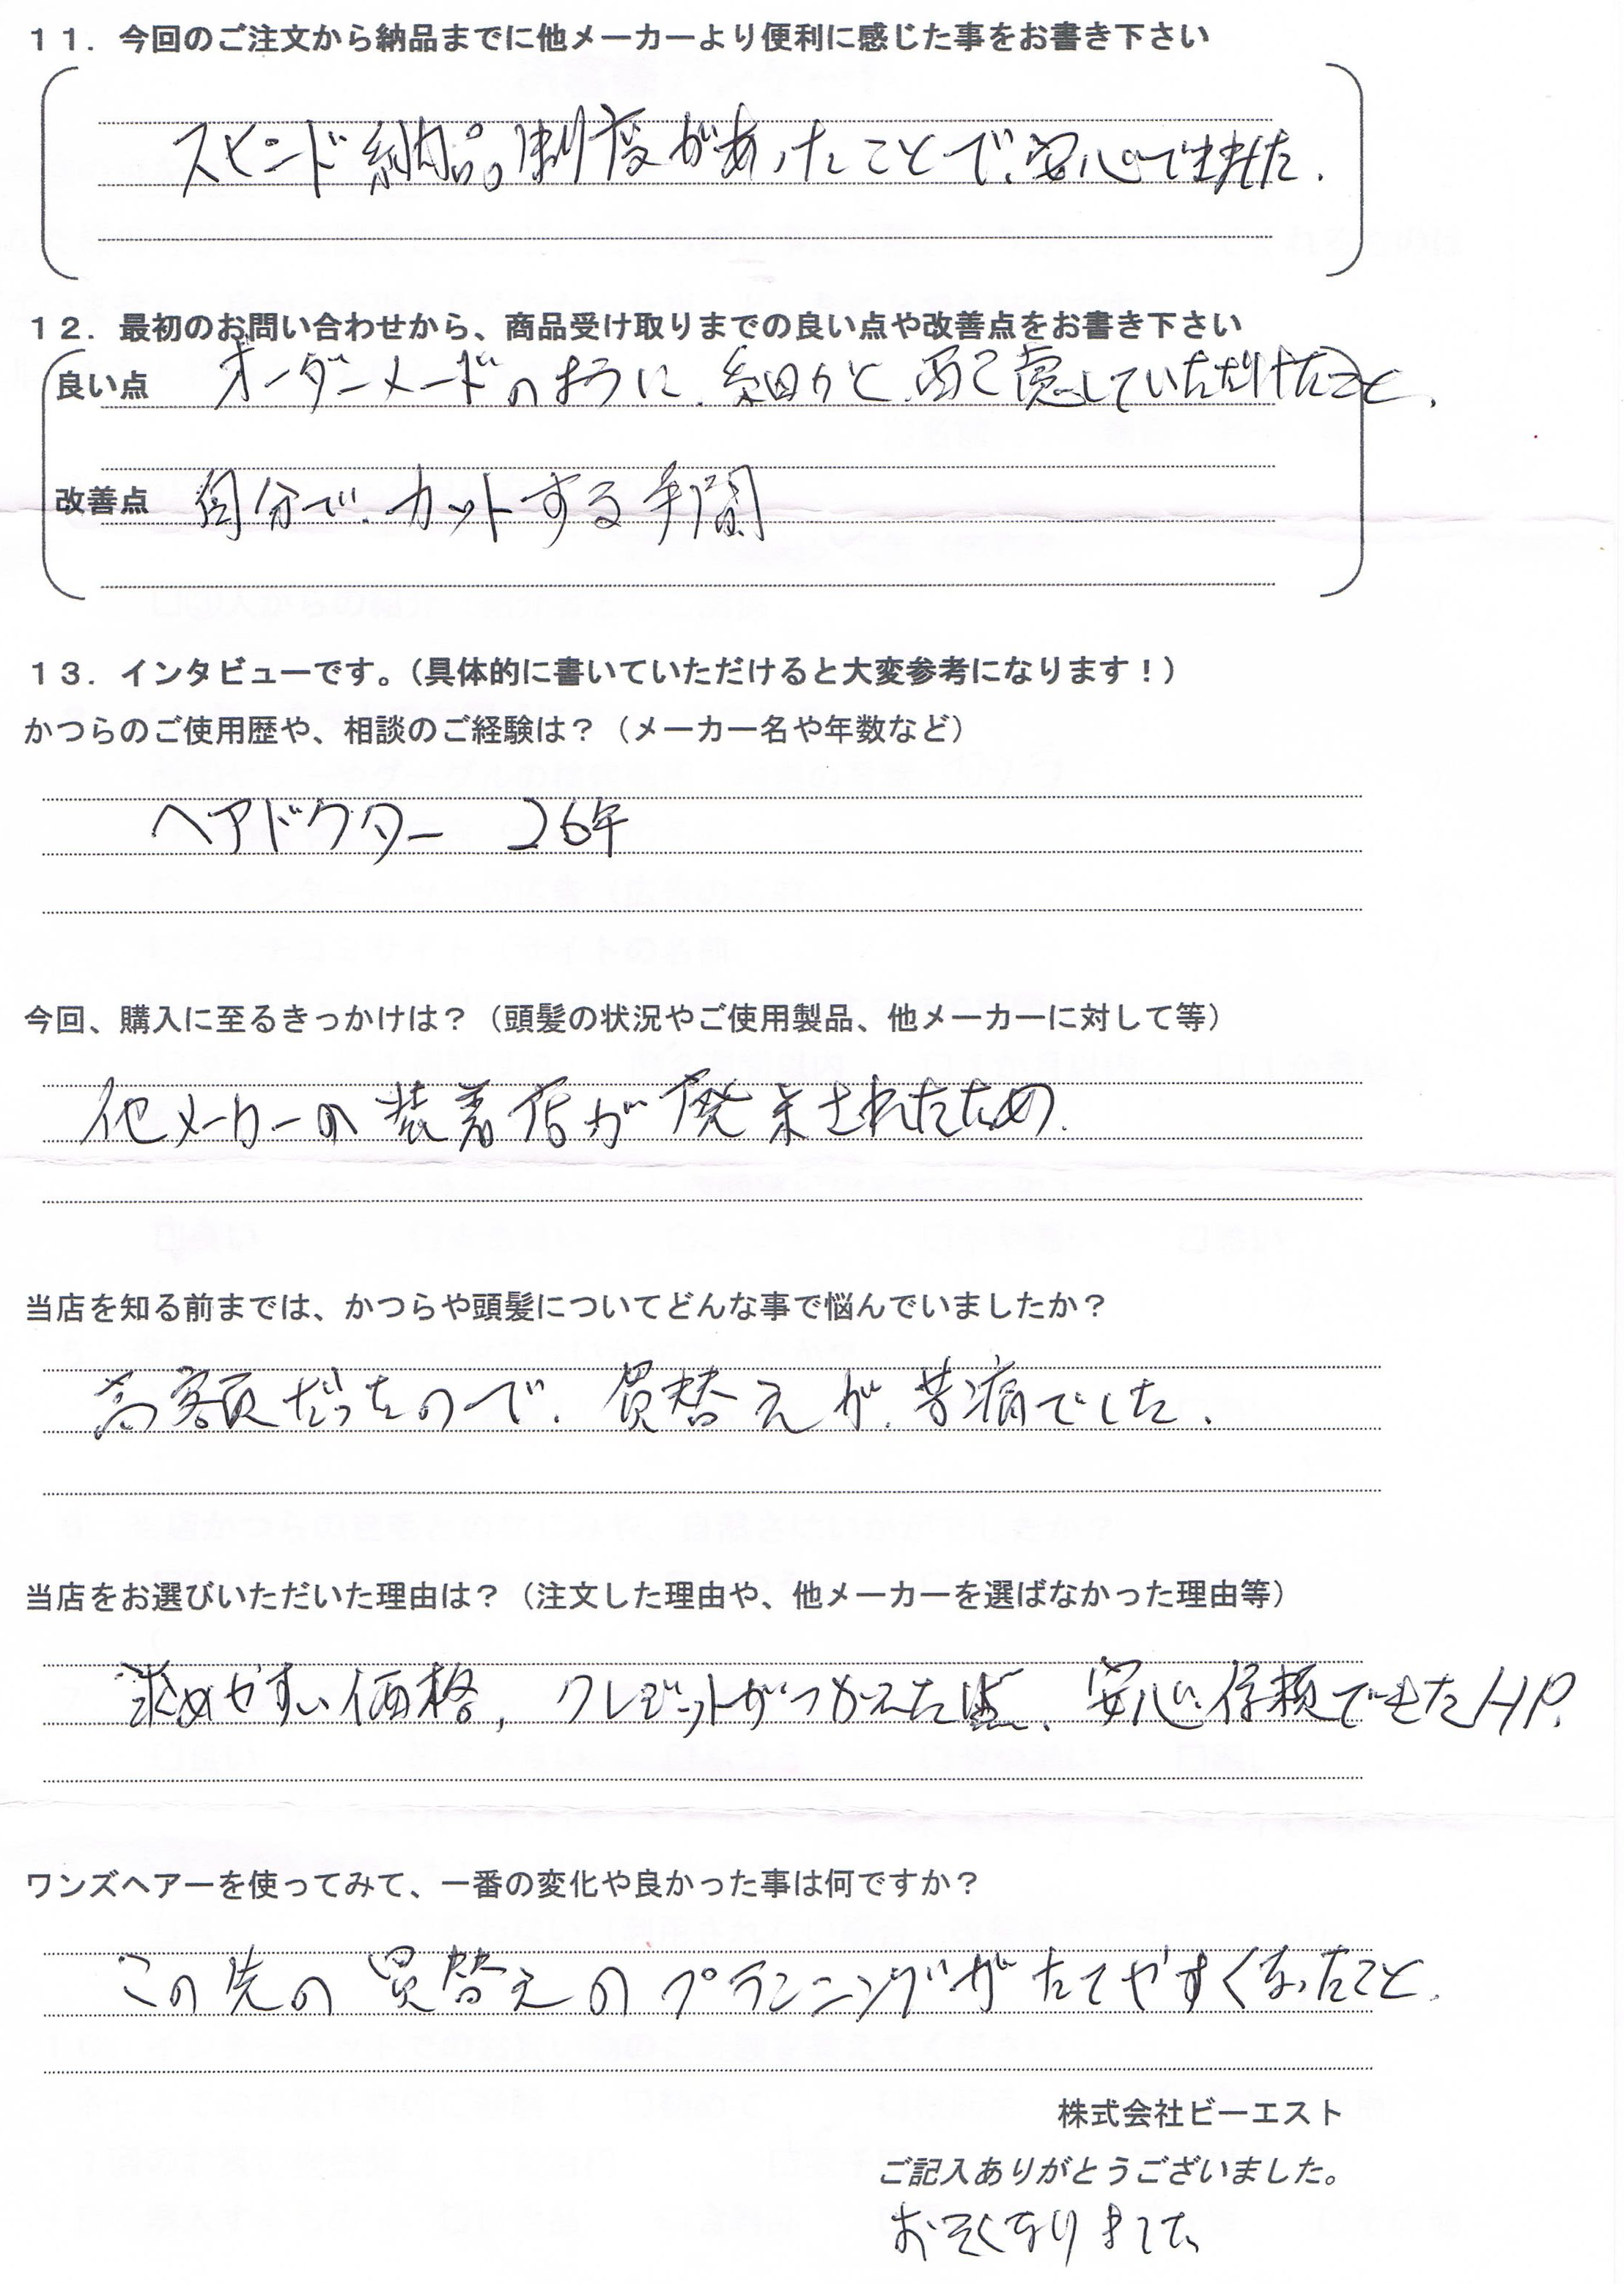 １１．今回のご注文から納品までに他メーカーより便利に感じた事をお書き下さい
スピード納品制度があったことで、安心できました.
１２．最初のお問い合わせから、商品受け取りまでの良い点や改善点をお書き下さい
良い点 オーダーメードのように、細かく配慮していただけたこと.
改善点 自分で、カットする手間
１３．インタビューです。（具体的に書いていただけると大変参考になります！）
かつらのご使用歴や、相談のご経験は？（メーカー名や年数など）
ヘアドクター 26年
今回、購入に至るきっかけは？（頭髪の状況やご使用製品、他メーカーに対して等）
他メーカーの装着店が廃業されたため.
当店を知る前までは、かつらや頭髪についてどんな事で悩んでいましたか？
高額だったので、買替えが、苦痛でした.
当店をお選びいただいた理由は？（注文した理由や、他メーカーを選ばなかった理由等）
求めやすい価格, クレジットがつかえた点、安心信頼できたHP.
ワンズヘアーを使ってみて、一番の変化や良かった事は何ですか？
この先の買替えのプランニングがたてやすくなったこと.
株式会社ビーエスト
ご記入ありがとうございました。
おそくなりました